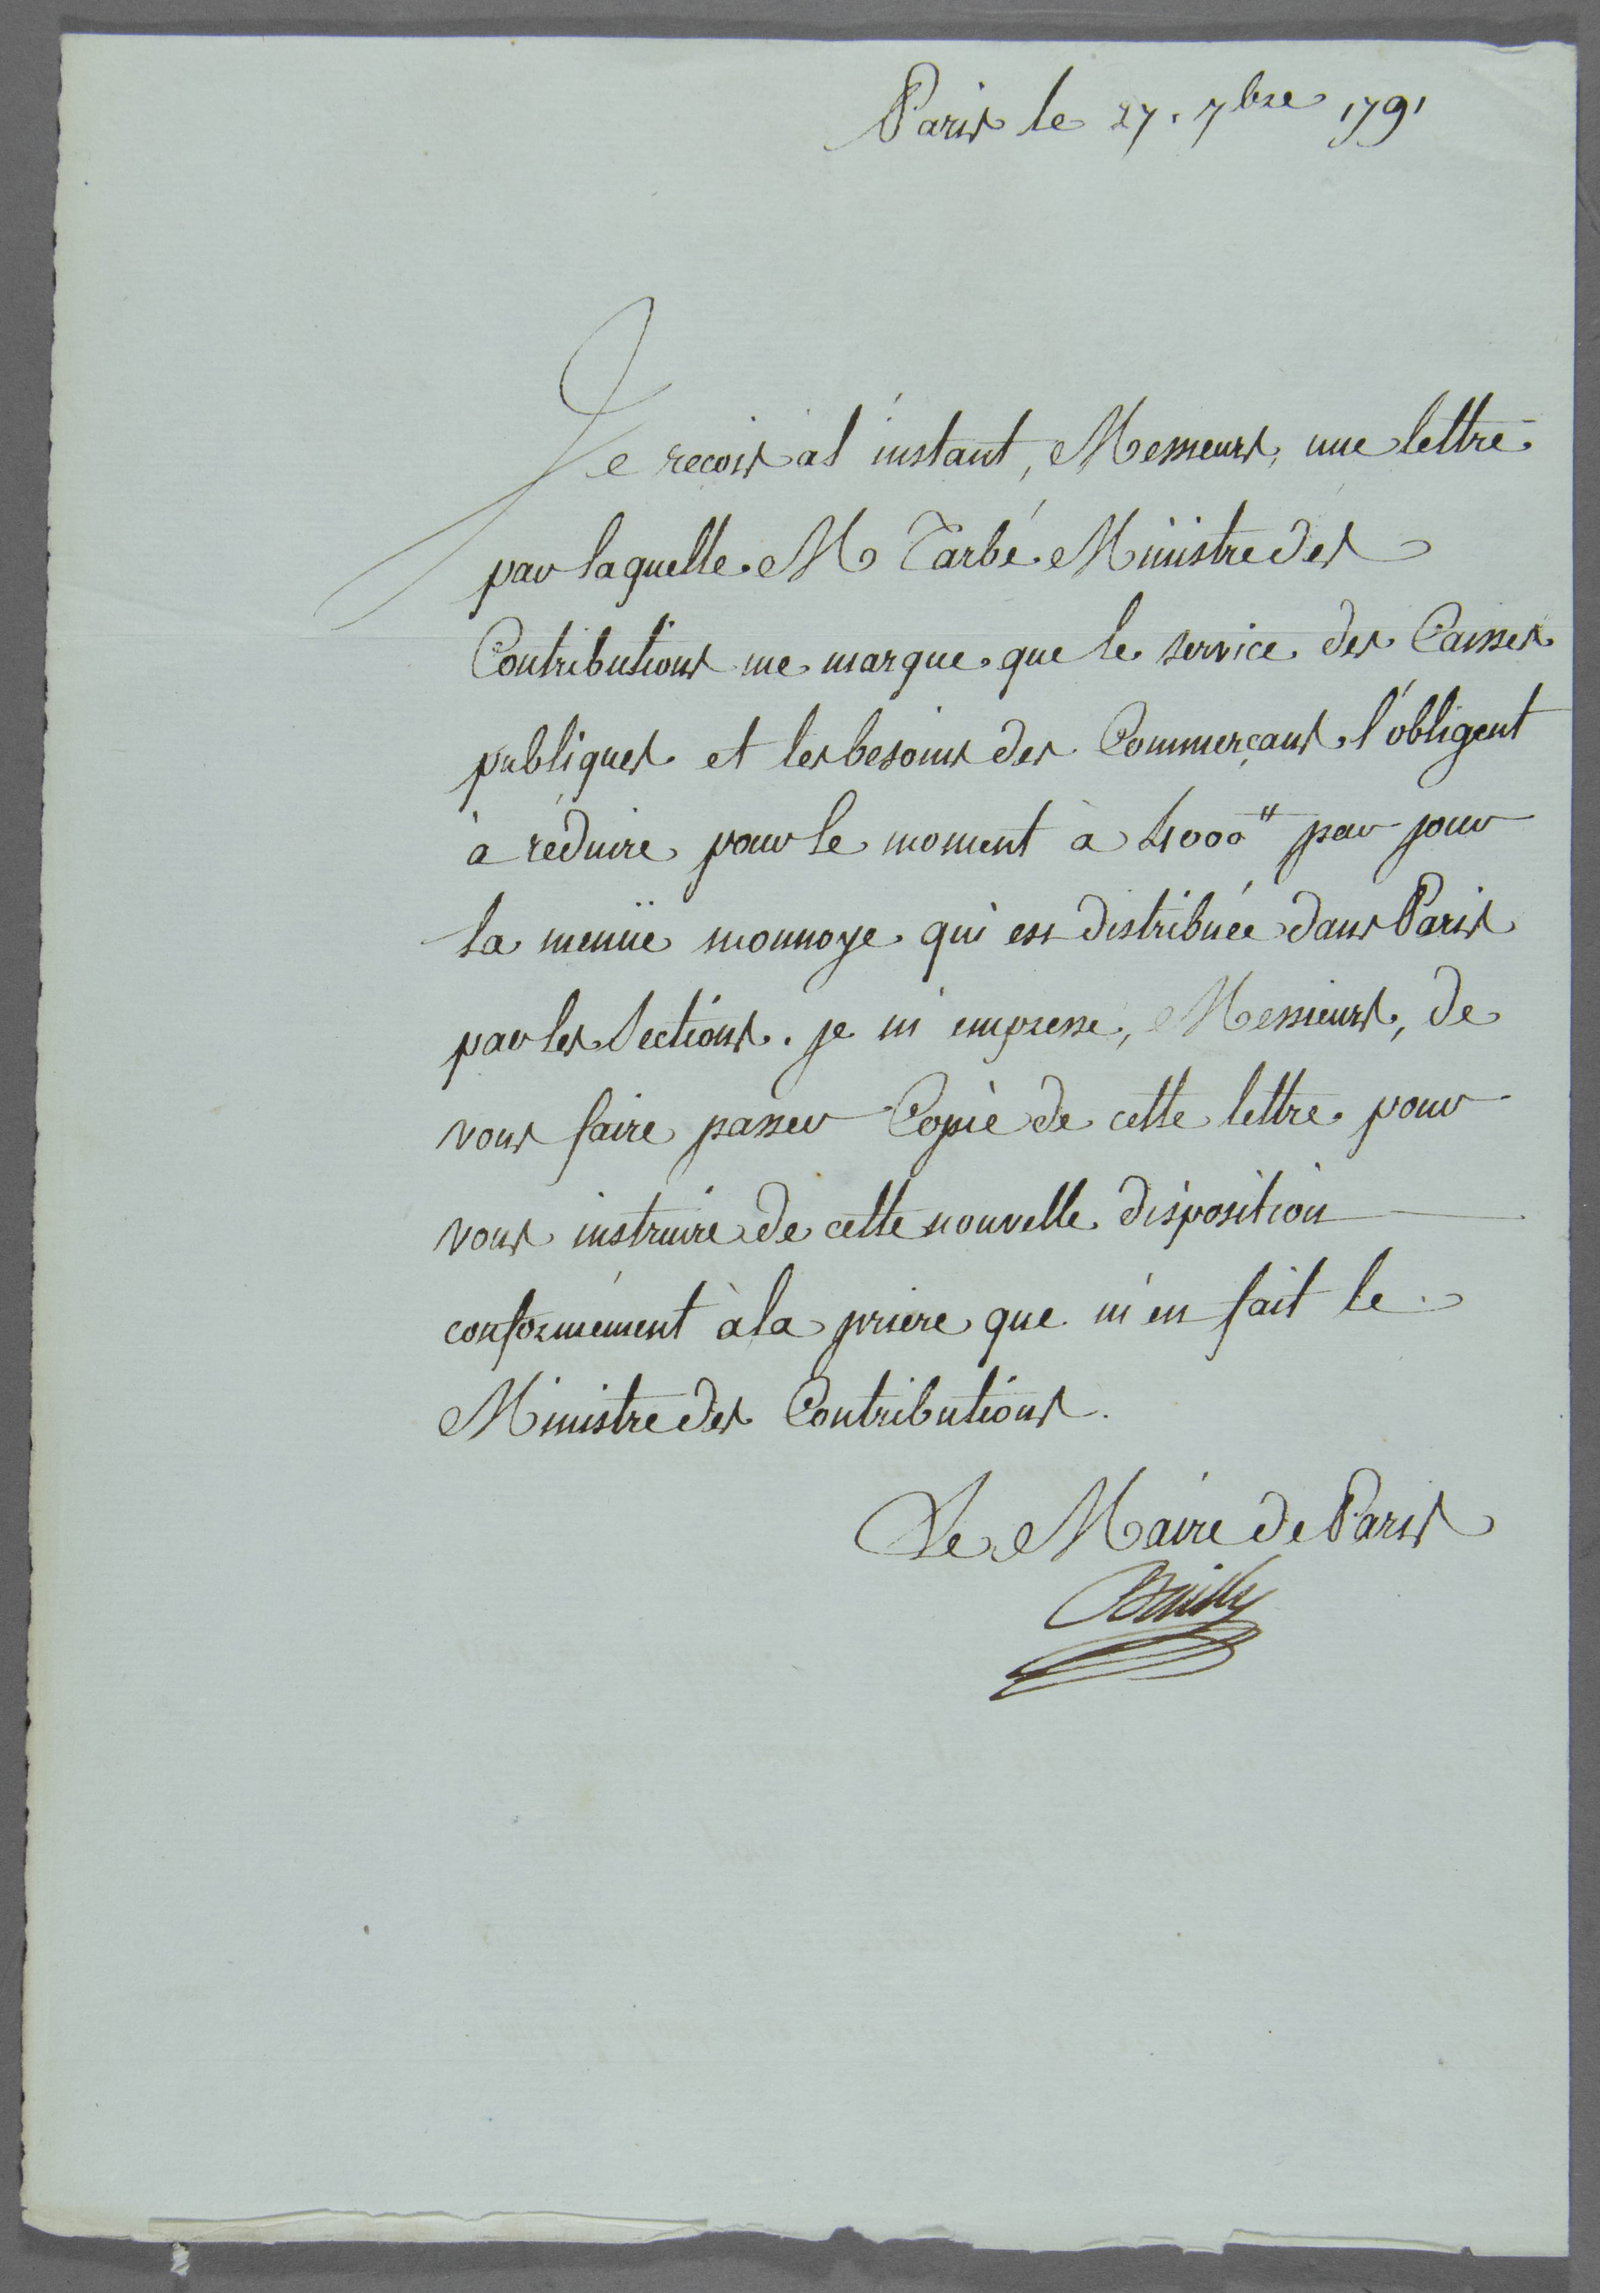 Paris le 27. 7bre 1791
Je recois al'instant, Messieurs, une lettre
par laquelle M Tarbé Ministre des
Contributions me marque que le service des Caisses
publiques et les besoins des Commerçans l'obligent
à réduire pour le moment à 4000" par jour
la menüe monnoye qui est distribuée dans Paris
par les Sections. je m'empresse, Messieurs, de
vous faire passer Copie de cette lettre pour
vous instruire de cette nouvelle disposition
conformément àla priere que m'en fait le
Ministre des Contributions.
Le Maire de Paris
Bailly